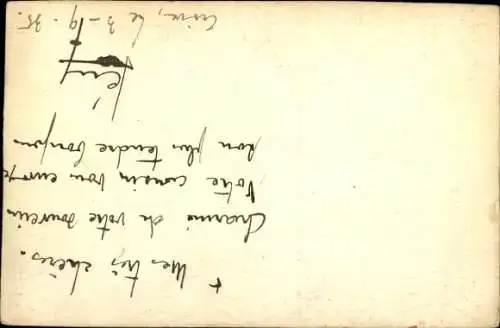 + Mes très chères.
Charmé de votre souvenir
Votre cousin vous envoie
son plus tendre bonjour
le 3-19. 35.